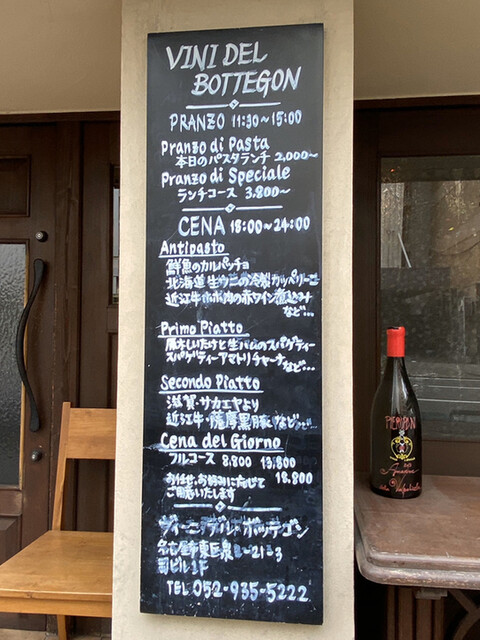 VINI DEL
BOTTEGON
PRANZO 11:30~15:00
Pranzo di Pasta
本日のパスタランチ 2,000~
Pranzo di Speciale
ランチコース 3,800~
CENA 18:00~24:00
Antipasto
鮮魚のカルパッチョ
北海道生ウニの冷製カッペリーニ
近江牛ホホ肉の赤ワイン煮込み
など…
Primo Piatto
原木しいたけと生ハムのスパゲティー
スパゲティーアマトリチャーナなど…
Secondo Piatto
滋賀・サカエヤより
近江牛・薩摩黒豚などなど…
Cena del Giorno
フルコース 8,800 13,800
18,800
お任せ、お好みに合わせて
ご用意いたします
ヴィーニ デル・ボッテゴン
名古屋市東区泉 -21-3
ビル1F
TEL 052-935-5222
PERICAN